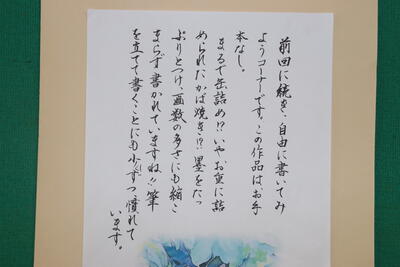 前回に続き、自由に書いてみ
ようコーナーです。この作品はお手
本なし。
まるで缶詰め!?いやお重に詰
められたかば焼き!?墨をたっ
ぷりとつけ、画数の多さにも縮こ
まらず書かれていますね!!筆
を立てて書くことにも少しずつ慣れて
います。